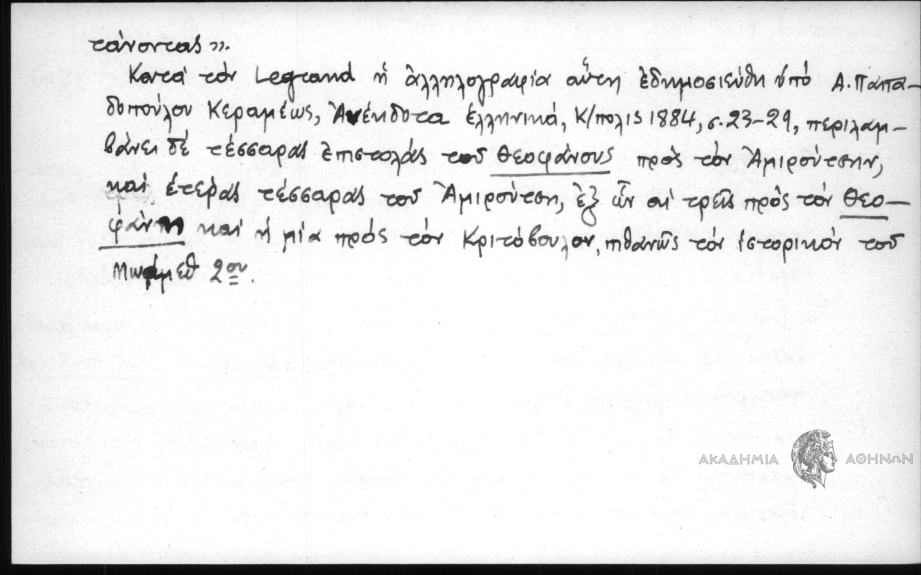 τάνοντας».
Κατά τόν Legrand ἡ ἀλληλογραφία αὕτη ἐδημοσιεύθη ὑπό Α. Παπα-
δοπούλου Κεραμέως, Ἀνέκδοτα ἑλληνικά, Κ/πολις 1884, σ. 23-29, περιλαμ-
βάνει δέ τέσσαρας ἐπιστολάς τοῦ Θεοφάνους πρός τόν Ἀμιρούτσην,
καί ἑτέρας τέσσαρας τοῦ Ἀμιρούτση, ἐξ ὧν αἱ τρεῖς πρός τόν Θεο-
φάνη καί ἡ μία πρός τόν Κριτόβουλον, πιθανῶς τόν ἱστορικόν τοῦ
Μωάμεθ 2ου.
ΑΚΑΔΗΜΙΑ ΑΘΗΝΩΝ